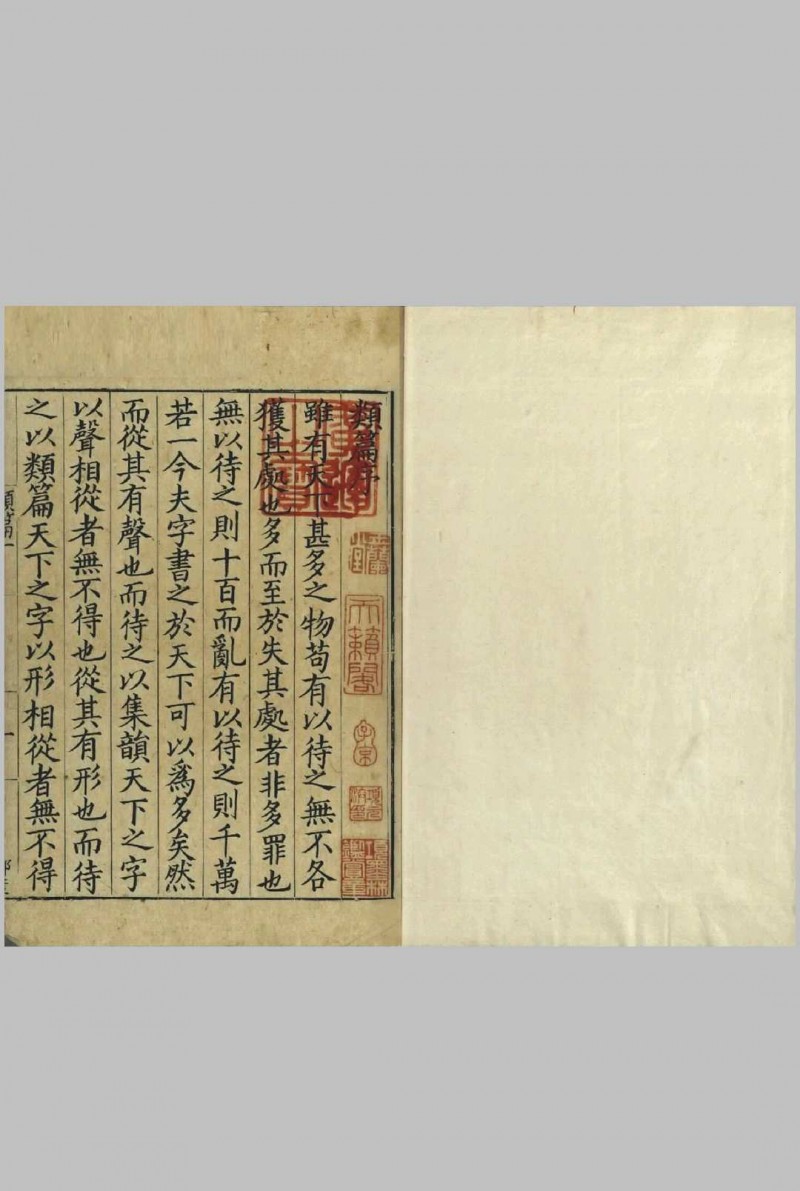 類篇序
雖有天下甚多之物苟有以待之無不各
獲其處也多而至於失其處者非多罪也
無以待之則十百而亂有以待之則千萬
若一今夫字書之於天下可以爲多矣然
而從其有聲也而待之以集韻天下之字
以聲相從者無不得也從其有形也而待
之以類篇天下之字以形相從者無不得
類篇一
一
天籟閣
子京